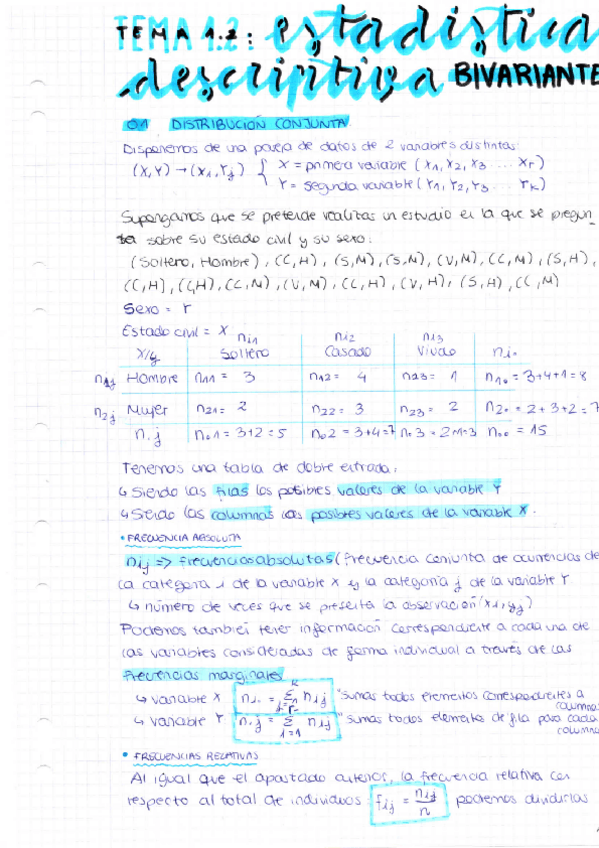 TEMA 1.2: estadística
descriptiva BIVARIANTE
0.1 DISTRIBUCIÓN CONJUNTA
Disponemos de una pareja de datos de 2 variables distintas:
(X,Y) → (xi, Yj) { X = primera variable (x1, x2, x3 ... xr)
Y = segunda variable (Y1, Y2, Y3 ... Yk)
Supongamos que se pretende realizar un estudio en la que se pregun_
ta sobre su estado civil y su sexo:
(Soltero, Hombre), (C,H), (S,M), (S,M), (V,M), (C,M), (S,H),
(C,H), (C,H), (C,M), (V,M), (C,H), (V,H), (S,H), (C,M)
Sexo = Y
Estado civil = X
ni1 ni2 ni3
X/y Soltero Casado Viudo ni.
n1j Hombre n11 = 3 n12 = 4 n23 = 1 n1. = 3+4+1=8
n2j Mujer n21 = 2 n22 = 3 n23 = 2 n2. = 2+3+2=7
n.j n.1 = 3+2=5 n.2 = 3+4=7 n.3 = 2+1=3 n.. = 15
Tenemos una tabla de doble entrada:
↳ Siendo las filas los posibles valores de la variable Y
↳ Siendo las columnas los posibles valores de la variable X.
• FRECUENCIA ABSOLUTA
nij => frecuencias absolutas (frecuencia conjunta de ocurrencias de
la categoría i de la variable X y la categoría j de la variable Y
↳ número de veces que se presenta la observación (xi, yj)
Podemos también tener información correspondiente a cada una de
las variables consideradas de forma individual a través de las
frecuencias marginales
↳ variable X ni. = Σ nij "Sumas todos elementos correspondientes a columnas
↳ variable Y n.j = Σ nij "Sumas todos elementos de fila para cada columna
• FRECUENCIAS RELATIVAS
Al igual que el apartado anterior, la frecuencia relativa con
respecto al total de individuos: fij = nij/n podemos dividirlas